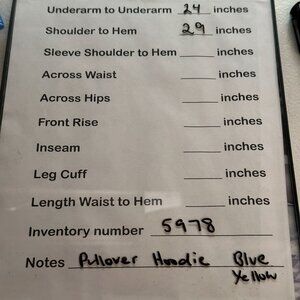 Underarm to Underarm 24 inches
Shoulder to Hem 29 inches
Sleeve Shoulder to Hem ____ inches
Across Waist ____ inches
Across Hips ____ inches
Front Rise ____ inches
Inseam ____ inches
Leg Cuff ____ inches
Length Waist to Hem ____ inches
Inventory number 5978
Notes Pullover Hoodie Blue
Yellow